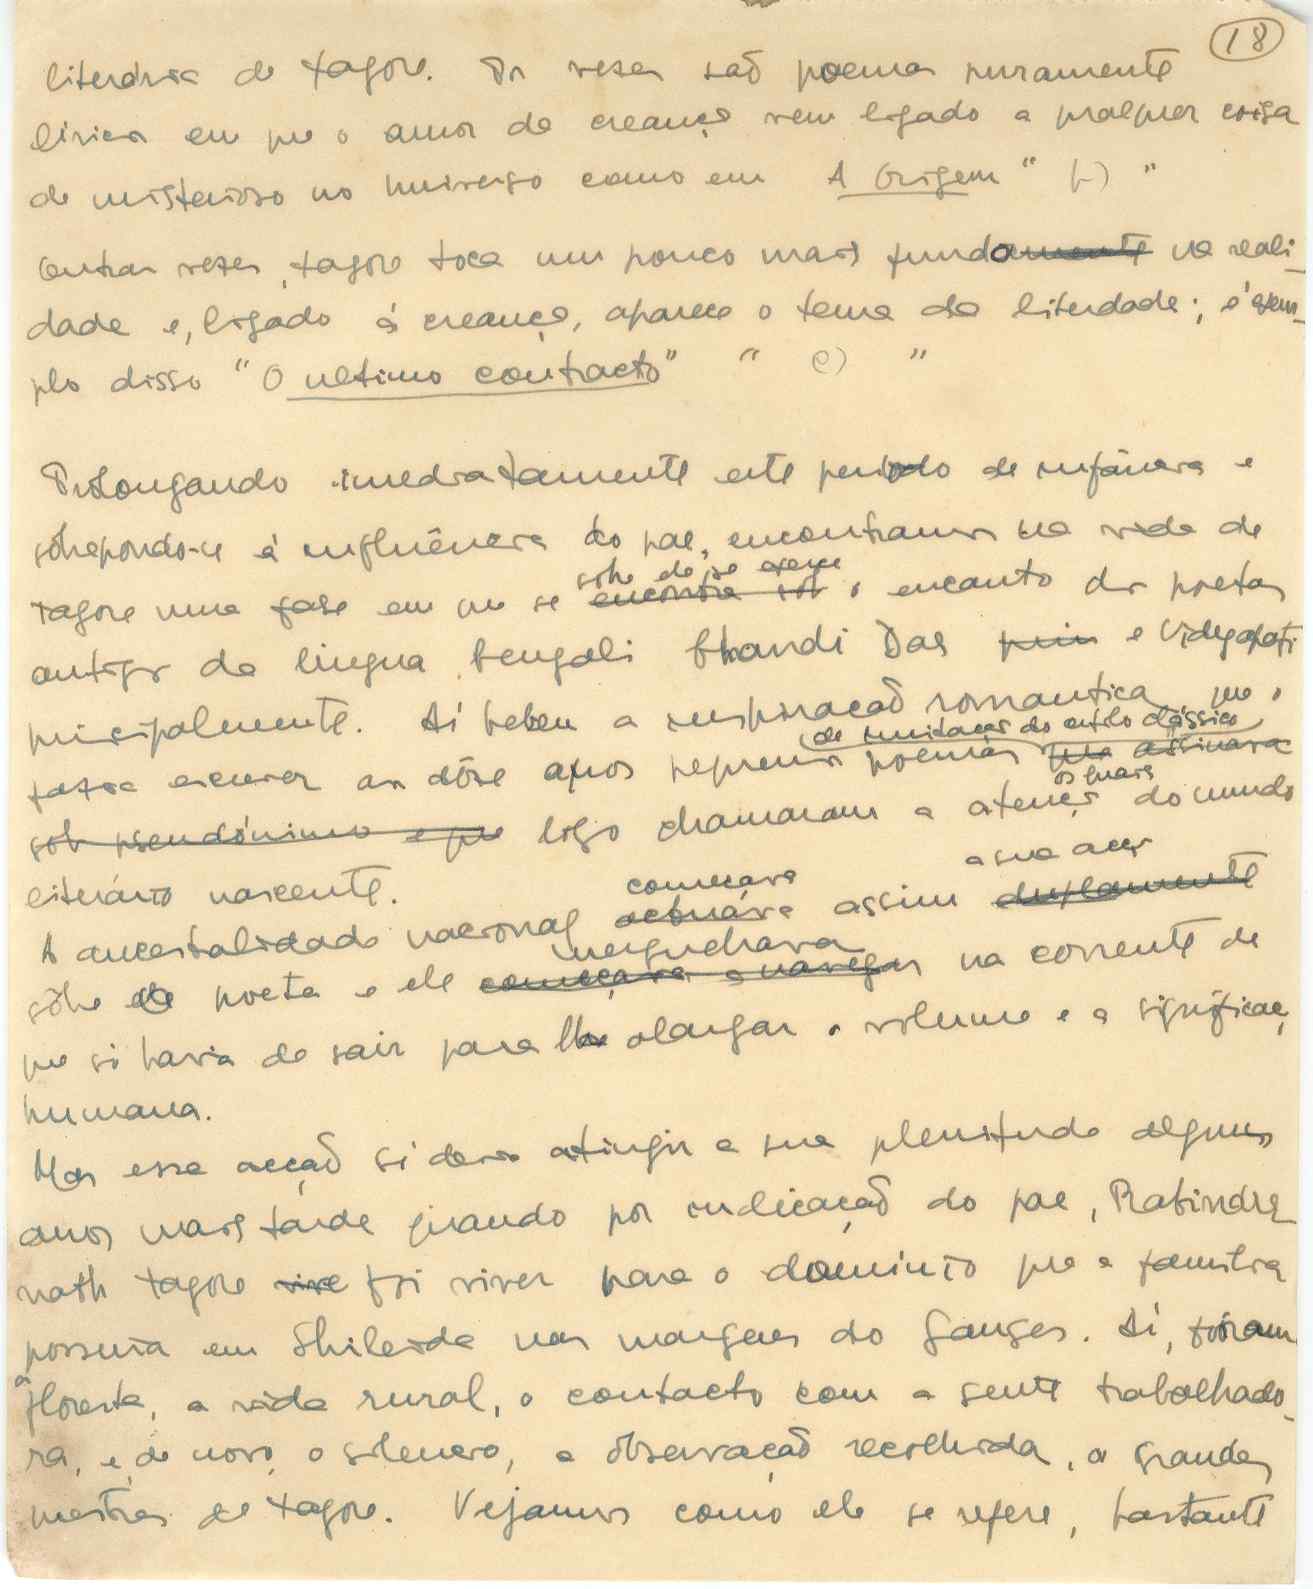 18
literária de Tagore. Por vezes são poemas puramente
líricos em que o amor da creança vem ligado a qualquer coisa
de misterioso no universo como em A Origem " (-) "
Outras vezes, Tagore toca um pouco mais fundamente na reali-
dade e, ligado á creança, aparece o tema da liberdade; é exem-
plo disso "O ultimo contracto" " (-) "
Prolongando imediatamente este periodo de infância e
sôbrepondo-se á influência do pae, encontramos na vida de
sôbre ele se exerce
Tagore uma fase em que se encontra sob o encanto dos poetas
antigos da lingua bengali Chandi Das e Vidyapati
principalmente. Aí bebeu a inspiração romantica que o
de imitação do estilo clássico
fazia escrever aos dôze anos pequenos poemas que assinava
os quais
sob pseudónimo e que logo chamaram a atenção do mundo
literário nascente.
começava a sua acção
A ancestralidade nacional actuáva assim duplamente
mergulhava
sôbre o poeta e ele começava a navegar na corrente de
que só havia de sair para lhe alargar o volume e a significação
humana.
Mas essa acção só devia atingir a sua plenitude alguns
anos mais tarde quando por indicação do pae, Rabindra
nath Tagore vive foi viver para o dominio que a familia
possuia em Shileida nas margens do Ganges. Aí, fôram
a floresta, a vida rural, o contacto com a gente trabalhado-
ra, e, de novo, o silencio, a observação recolhida, os grandes
mestres de Tagore. Vejamos como ele se refere, bastante